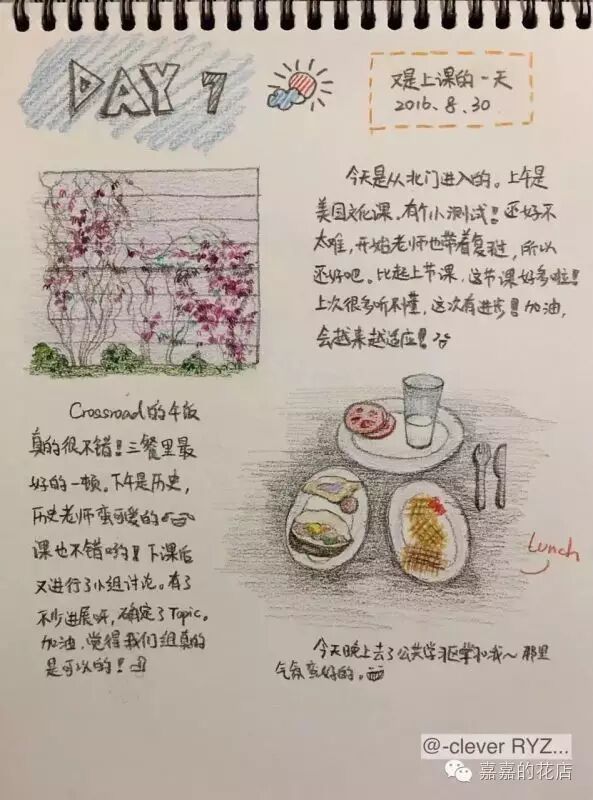 DAY 7
又是上课的一天
2016.8.30
今天是从北门进入的。上午是
美国文化课,有个小测试!还好不
太难,开始老师也带着复习,所以
还好吧。比起上节课,这节课好多啦!
上次很多听不懂,这次有进步!加油,
会越来越适应!
Crossroad的午饭
真的很不错!三餐里最
好的一顿。下午是历史,
历史老师蛮可爱的
课也不错哟!下课后
又进行了小组讨论。有了
不少进展呀,确定了Topic。
加油,觉得我们组真的
是可以的!
Lunch
今天晚上去了公共学习区 那里
气氛蛮好的。
@-clever RYZ...
嘉嘉的花店